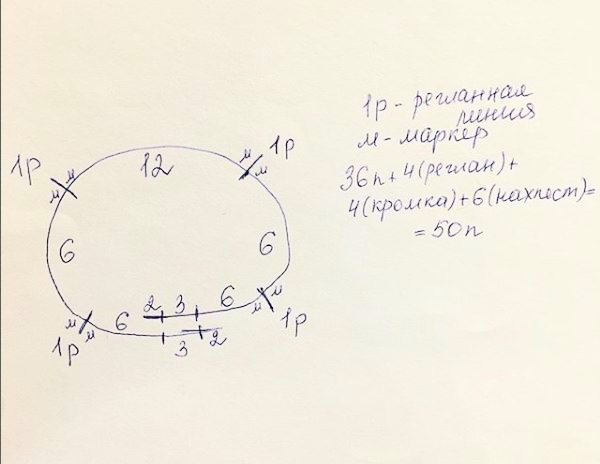 1р - регланная
линия
м - маркер
36п + 4(реглан) +
4(кромка) + 6(нахлест) =
= 50п
1р м м 12 м м 1р
6 6
2 3 6 м м 1р
1р м м 6 3 2